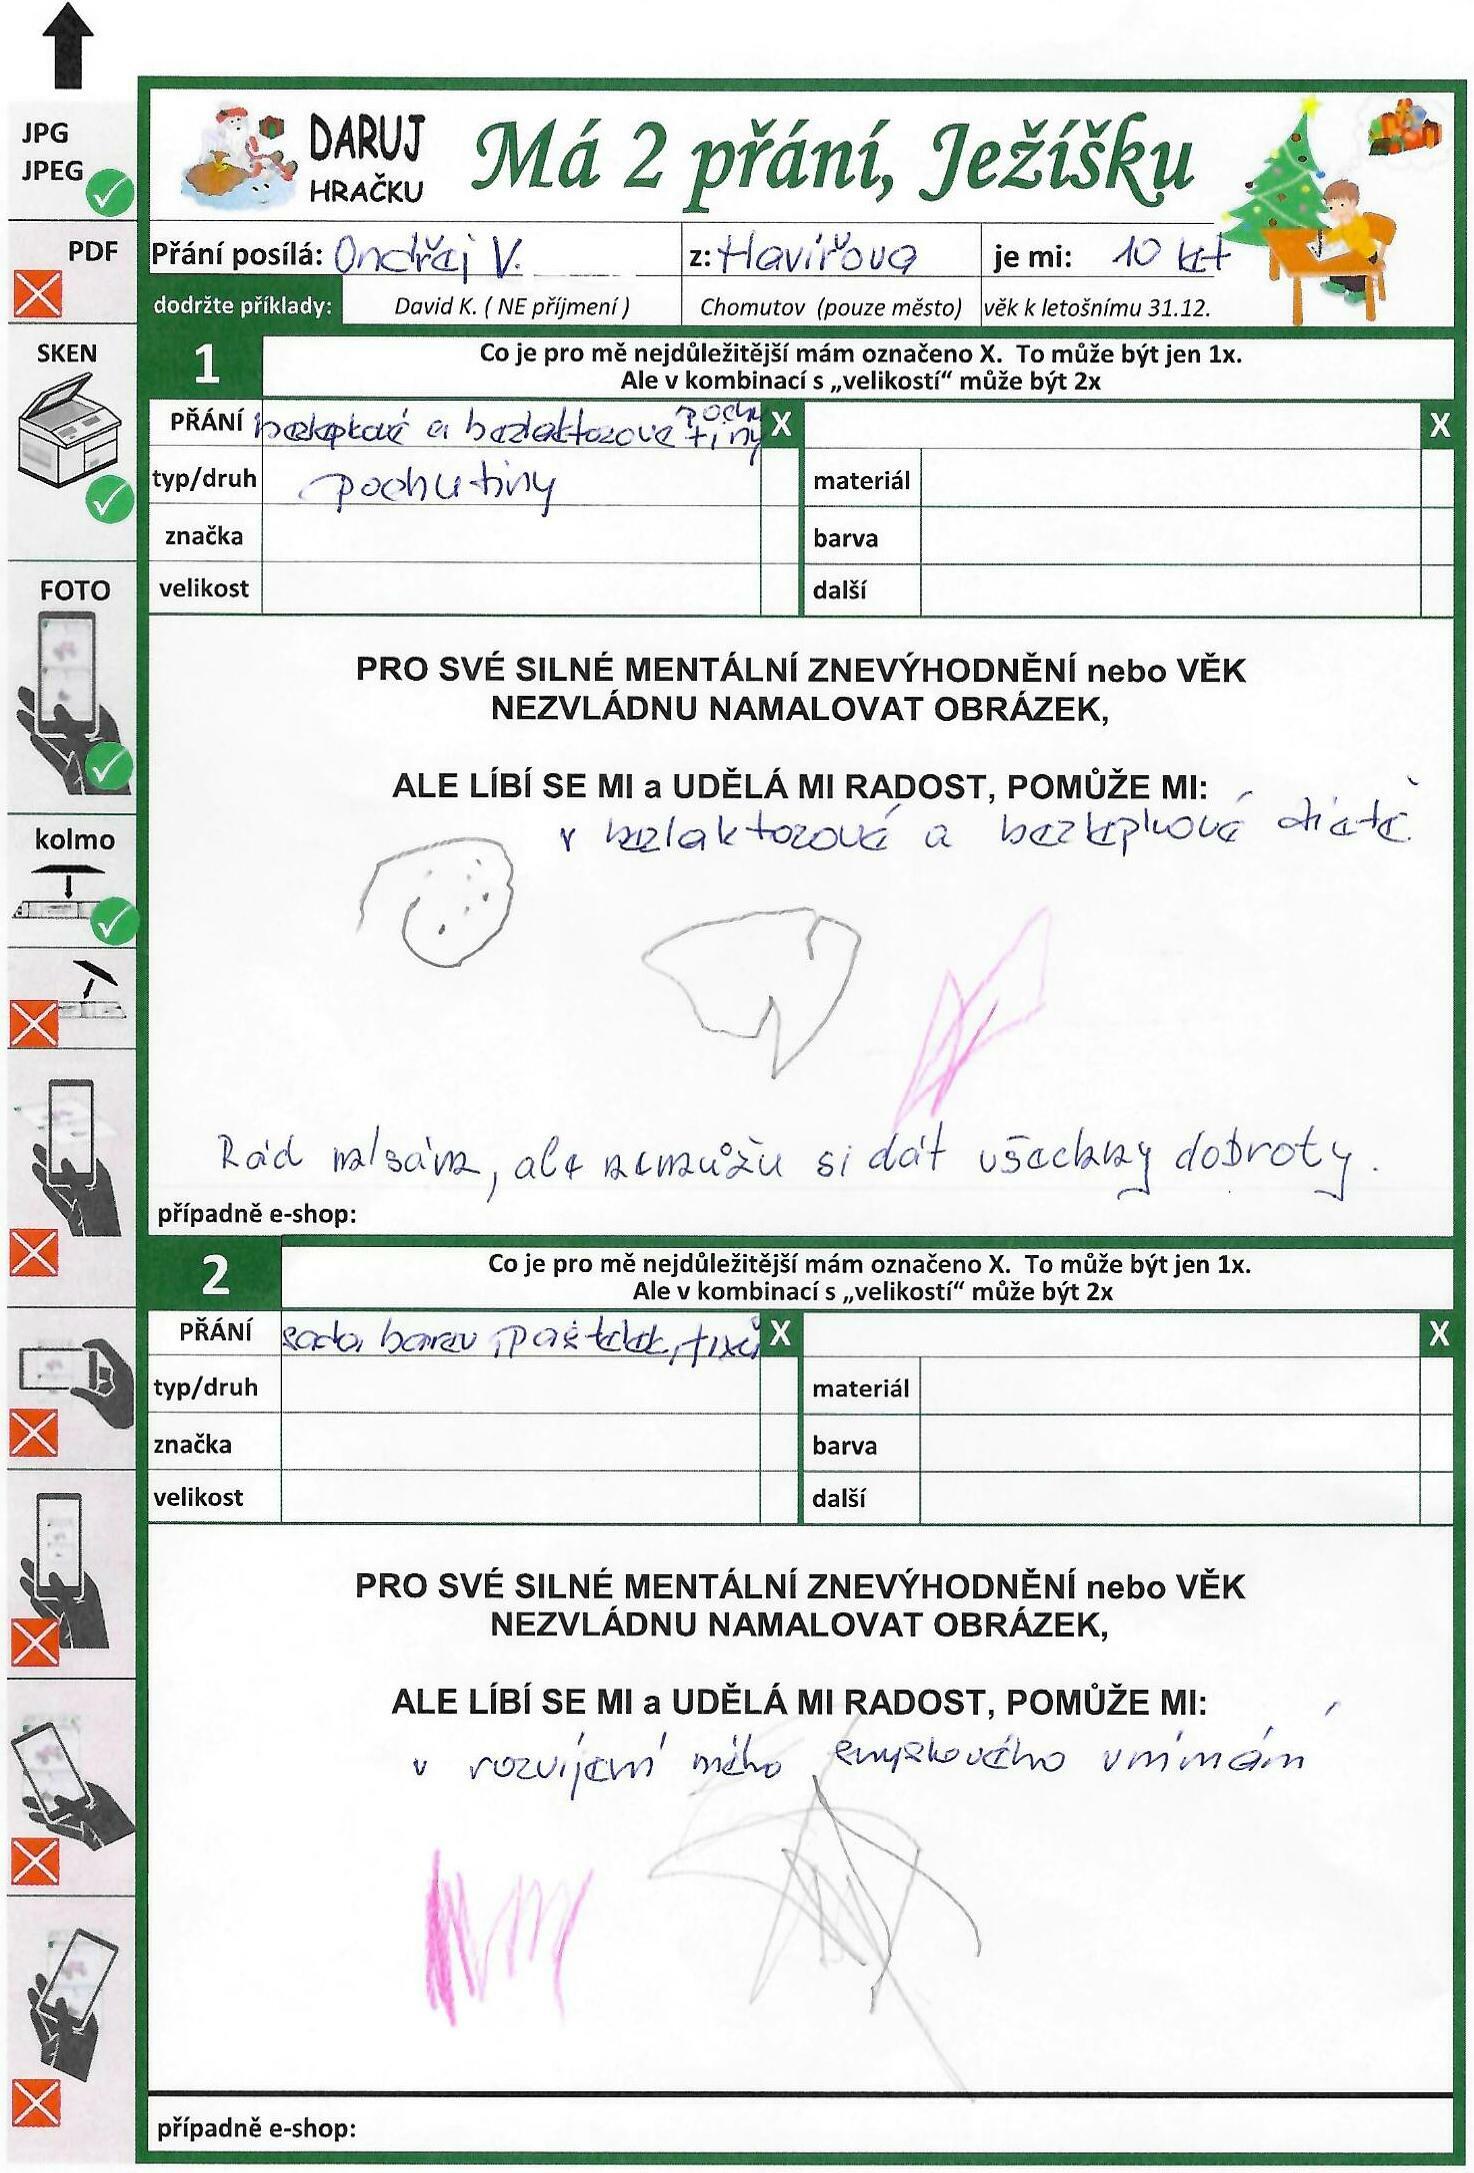 JPG
JPEG
PDF
SKEN
FOTO
kolmo
DARUJ
HRAČKU
Má 2 přání, Ježíšku
Přání posílá: Ondřej V. z: Havířova je mi: 10 let
dodržte příklady: David K. ( NE příjmení ) Chomutov (pouze město) věk k letošnímu 31.12.
1 Co je pro mě nejdůležitější mám označeno X. To může být jen 1x.
Ale v kombinací s „velikostí“ může být 2x
PŘÁNÍ bezlepkové a bezlaktozové pochutiny X X
typ/druh pochutiny materiál
značka barva
velikost další
PRO SVÉ SILNÉ MENTÁLNÍ ZNEVÝHODNĚNÍ nebo VĚK
NEZVLÁDNU NAMALOVAT OBRÁZEK,
ALE LÍBÍ SE MI a UDĚLÁ MI RADOST, POMŮŽE MI:
v bezlaktozové a bezlepkové dietě.
Rád mlsám, ale nemůžu si dát všechny dobroty.
případně e-shop:
2 Co je pro mě nejdůležitější mám označeno X. To může být jen 1x.
Ale v kombinací s „velikostí“ může být 2x
PŘÁNÍ sada barev, pastelek, fixů X X
typ/druh materiál
značka barva
velikost další
PRO SVÉ SILNÉ MENTÁLNÍ ZNEVÝHODNĚNÍ nebo VĚK
NEZVLÁDNU NAMALOVAT OBRÁZEK,
ALE LÍBÍ SE MI a UDĚLÁ MI RADOST, POMŮŽE MI:
v rozvíjení mého smyslového vnímání
případně e-shop: